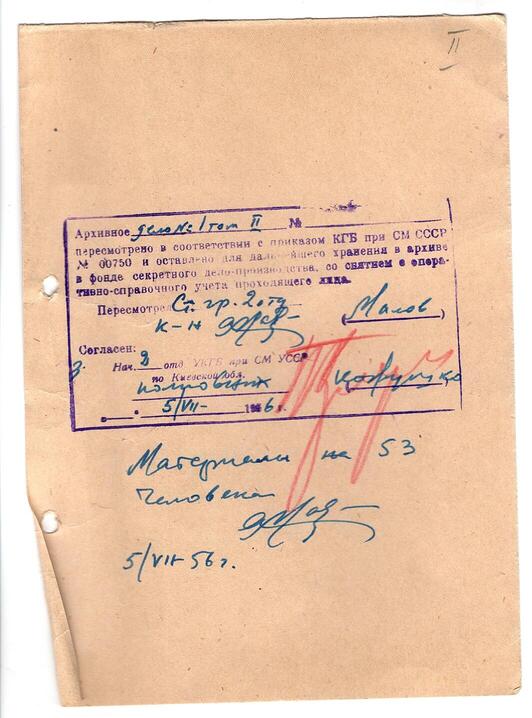 II
Архивное дело № 1 том II № 
пересмотрено в соответствии с приказом КГБ при СМ СССР
№ 00750 и оставлено для дальнейшего хранения в архиве
в фонде секретного дело-производства, со снятием с опера-
тивно-справочного учета проходящего лица.
Пересмотрел Ст. гр. 2 отд
к-н (Малов)
Согласен:
з. Нач. 2 отд УКГБ при СМ УССР
по Киевской обл.
полковник
5/VII- 1956 г.
Материалы на 53
человека
5/VII 56 г.